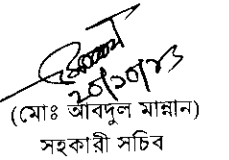 ২০/১০/১৩
(মোঃ আবদুল মান্নান)
সহকারী সচিব